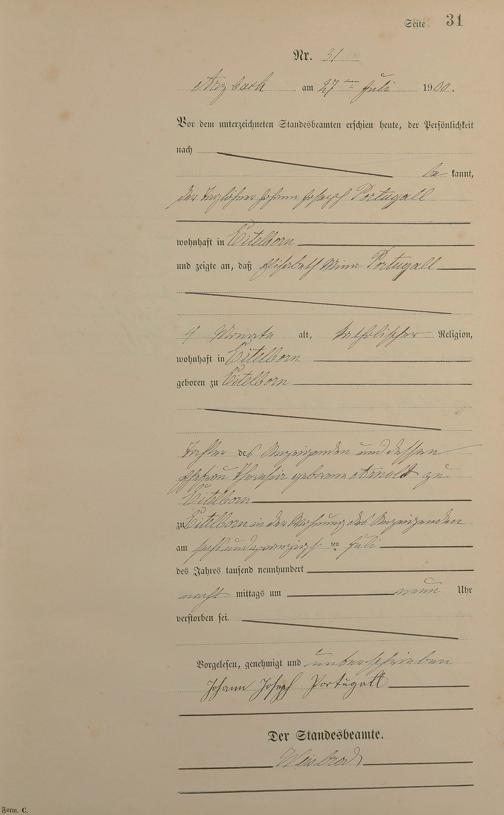 Seite 31
Nr. 31
Arzbach am 27ten Juli 1900.
Vor dem unterzeichneten Standesbeamten erschien heute, der Persönlichkeit
nach
be kannt,
der Taglöhner Johann Joseph Portugall
wohnhaft in Eitelborn
und zeigte an, daß Elisabeth Anna Portugall
4 Monate alt, katholischer Religion,
wohnhaft in Eitelborn
geboren zu Eitelborn
Tochter des Anzeigenden und dessen
Ehefrau geborene Arnold zu
Eitelborn
zu Eitelborn in der Wohnung des Anzeigenden
am sechsundzwanzigsten Juli
des Jahres tausend neunhundert
nach mittags um neun Uhr
verstorben sei.
Vorgelesen, genehmigt und unterschrieben
Johann Joseph Portugall
Der Standesbeamte.
Form. C.